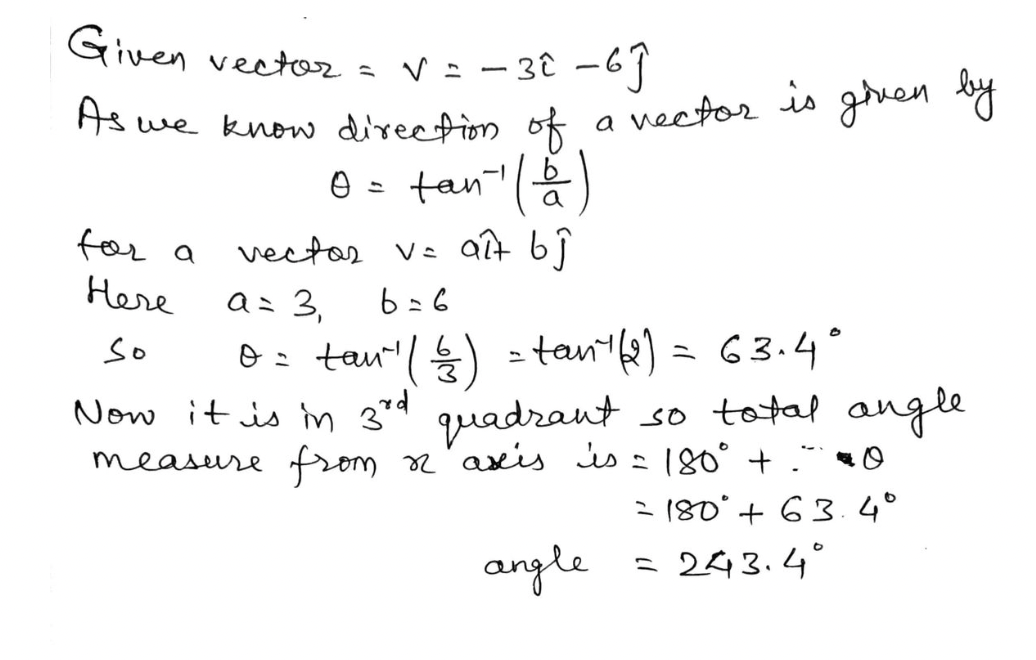 Given vector = v = -3î -6ĵ
As we know direction of a vector is given by
θ = tan⁻¹(b/a)
for a vector v = aî + bĵ
Here a = 3, b = 6
So θ = tan⁻¹(6/3) = tan⁻¹(2) = 63.4°
Now it is in 3rd quadrant so total angle
measure from x axis is = 180° + θ
= 180° + 63.4°
angle = 243.4°